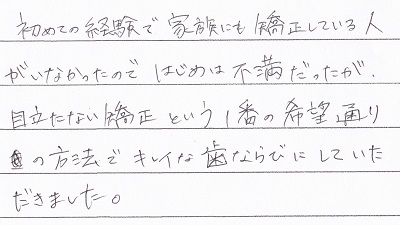 初めての経験で家族にも矯正している人
がいなかったので はじめは不満だったが、
目立たない矯正という1番の希望通り
の方法でキレイな歯ならびにしていた
だきました。